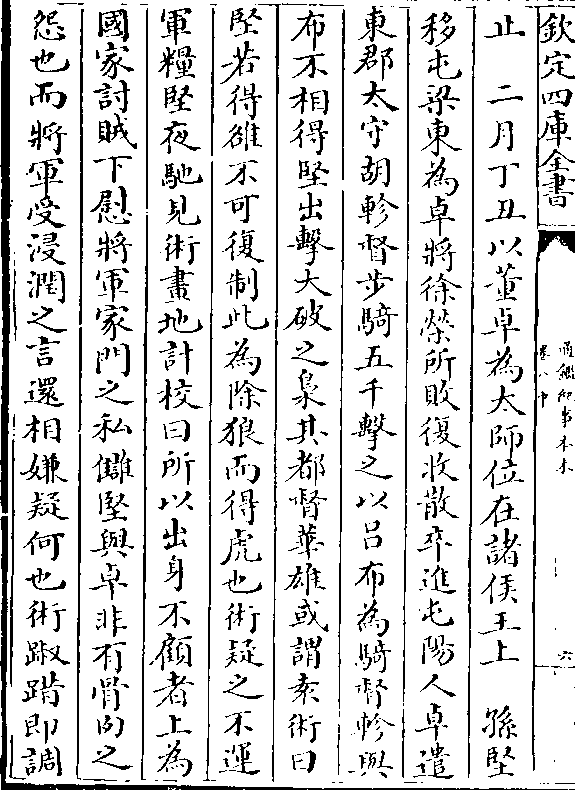 欽定四庫全書
通鑑紀事本末
卷八中
六
止　二月丁丑以董卓為太師位在諸侯王上　孫堅
移屯梁東為卓將徐榮所敗復收散卒進屯陽人卓遣
東郡太守胡軫督步騎五千擊之以吕布為騎督軫與
布不相得堅出擊大破之梟其都督華雄或謂袁術曰
堅若得雒不可復制此為除狼而得虎也術疑之不運
軍糧堅夜馳見術畫地計校曰所以出身不顧者上為
國家討賊下慰將軍家門之私讎堅與卓非有骨肉之
怨也而將軍受浸潤之言還相嫌疑何也術踧踖即調